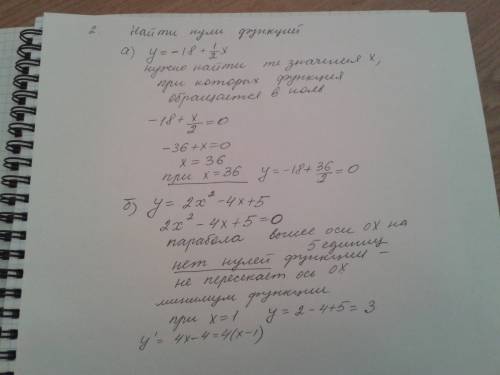 2 Найти нули функций
а) y = -18 + 1/2 x
нужно найти те значения x,
при которых функция
обращается в ноль
-18 + x/2 = 0
-36 + x = 0
x = 36
при x = 36 y = -18 + 36/2 = 0
б) y = 2x² - 4x + 5
2x² - 4x + 5 = 0
парабола выше оси OX на
5 единиц
нет нулей функции -
не пересекает ось OX
минимум функции
при x = 1 y = 2 - 4 + 5 = 3
y' = 4x - 4 = 4(x - 1)